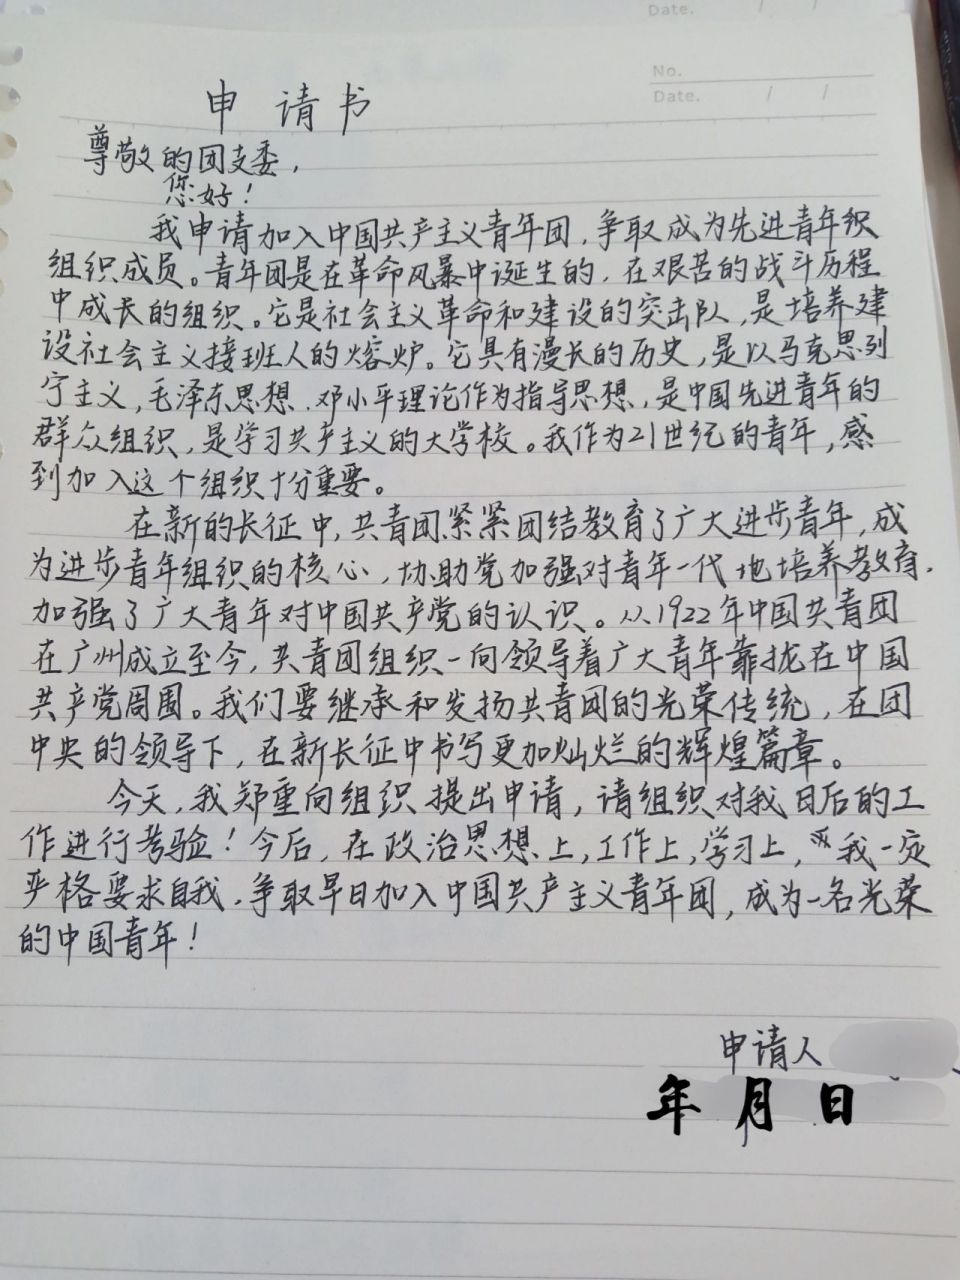 Date. / /
No.
Date. / /
申请书
尊敬的团支委，
您好！
我申请加入中国共产主义青年团，争取成为先进青年织
组织成员。青年团是在革命风暴中诞生的，在艰苦的战斗历程
中成长的组织。它是社会主义革命和建设的突击队，是培养建
设社会主义接班人的熔炉。它具有漫长的历史，是以马克思列
宁主义，毛泽东思想．邓小平理论作为指导思想，是中国先进青年的
群众组织，是学习共产主义的大学校。我作为21世纪的青年，感
到加入这个组织十分重要。
在新的长征中，共青团紧紧团结教育了广大进步青年，成
为进步青年组织的核心，协助党加强对青年一代地培养教育，
加强了广大青年对中国共产党的认识。从1922年中国共青团
在广州成立至今，共青团组织一向领导着广大青年靠拢在中国
共产党周围。我们要继承和发扬共青团的光荣传统，在团
中央的领导下，在新长征中书写更加灿烂的辉煌篇章。
今天，我郑重向组织提出申请，请组织对我日后的工
作进行考验！今后，在政治思想上，工作上，学习上，我一定
严格要求自我．争取早日加入中国共产主义青年团，成为一名光荣
的中国青年！
申请人
年 月 日